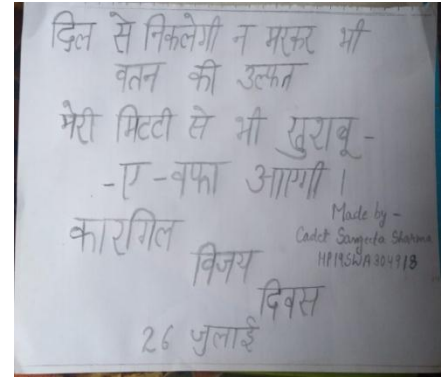 दिल से निकलेगी न मरकर भी
वतन की उल्फत
मेरी मिटटी से भी खुशबू -
- ए - वफा आएगी ।
कारगिल
विजय
दिवस
26 जुलाई
Made by -
Cadet Sangeeta Sharma
HP19SWA804918